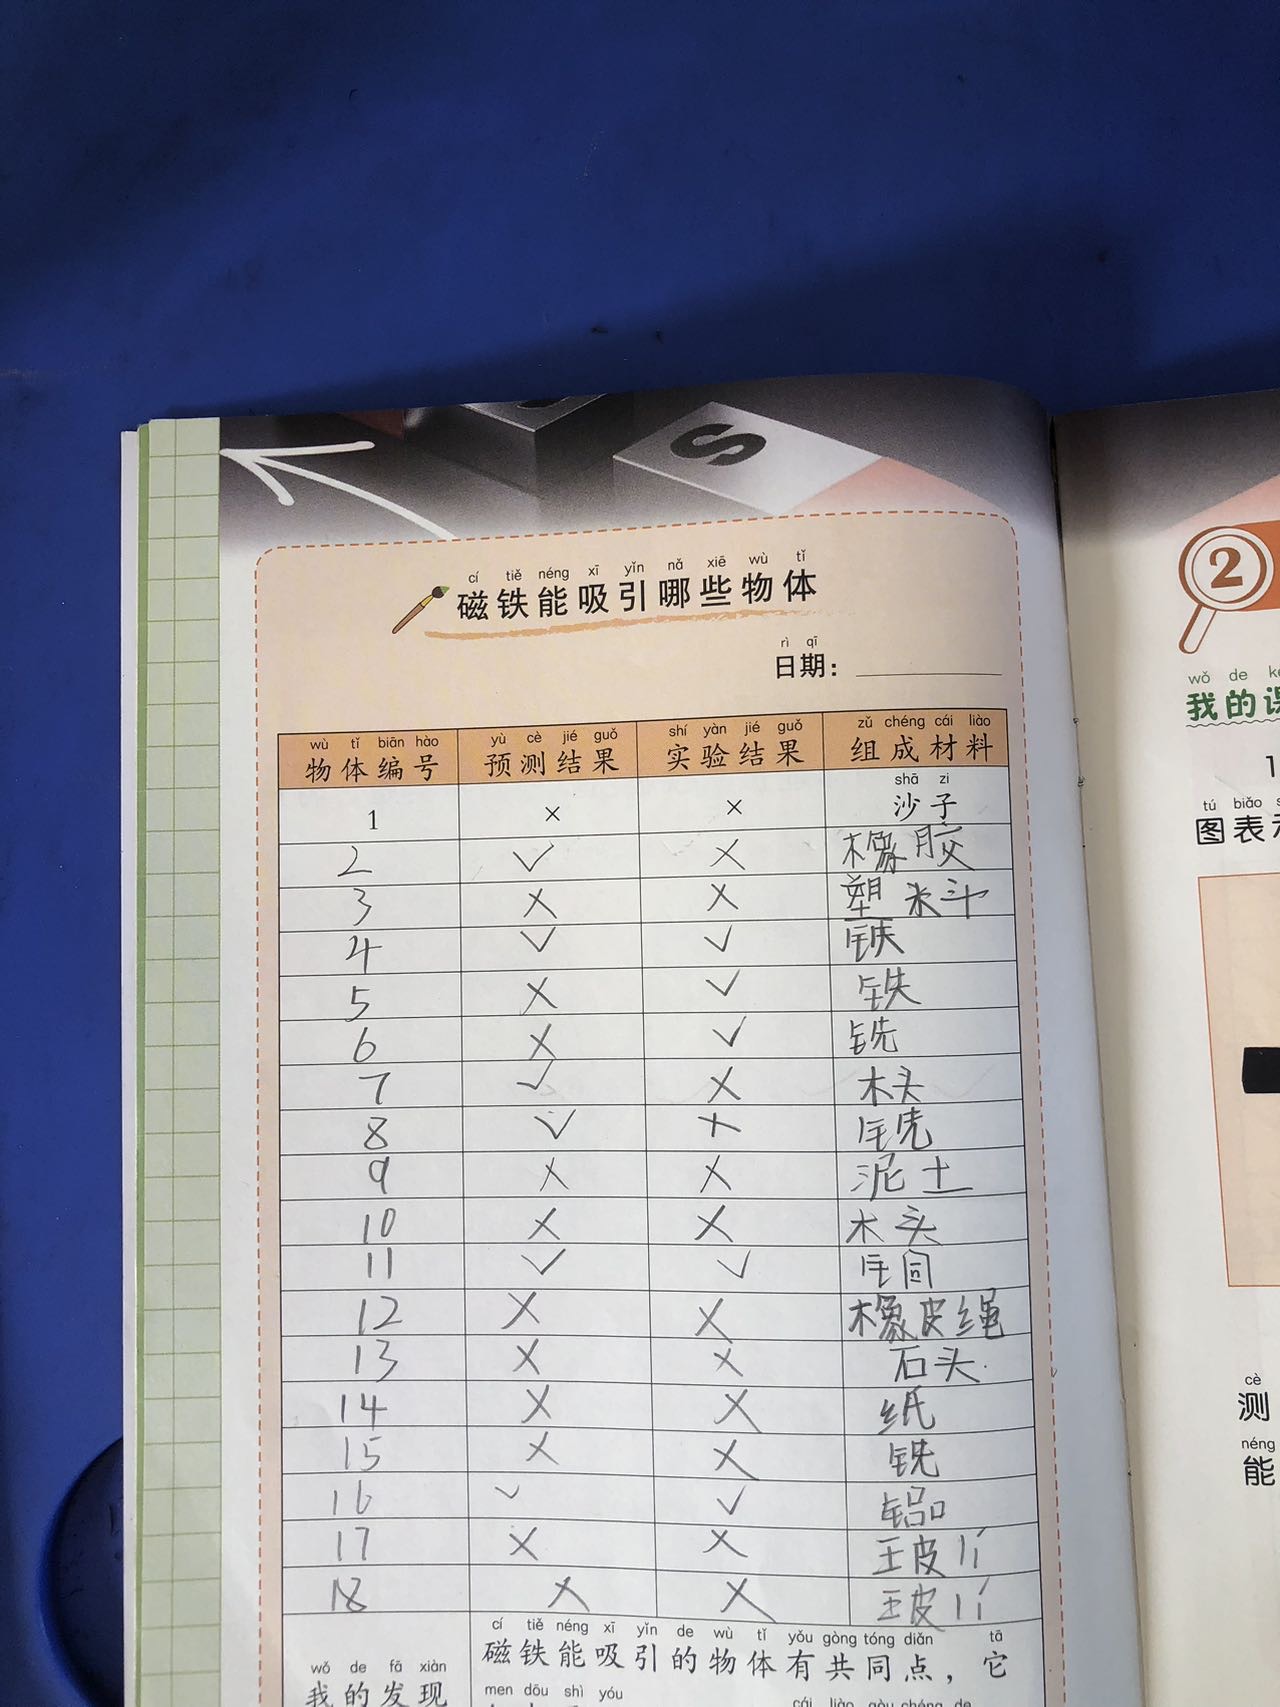 S
cí tiě néng xī yǐn nǎ xiē wù tǐ
磁铁能吸引哪些物体
rì qī
日期：
wù tǐ biān hào yù cè jié guǒ shí yàn jié guǒ zǔ chéng cái liào
物体编号 预测结果 实验结果 组成材料
shā zi
1 × × 沙子
2 ✓ × 橡胶
3 × × 塑料
4 ✓ ✓ 铁
5 × ✓ 铁
6 × ✓ 铁
7 ✓ × 木头
8 ✓ ×
9 × × 泥土
10 × × 木头
11 ✓ ✓ 铜
12 × × 橡皮绳
13 × × 石头
14 × × 纸
15 × ×
16 ✓ ✓ 铝
17 × ×
18 × ×
cí tiě néng xī yǐn de wù tǐ yǒu gòng tóng diǎn tā
磁铁能吸引的物体有共同点，它
wǒ de fā xiàn
我的发现
men dōu shì yóu cái liào gòu chéng de
2
wǒ de kè
我的课
1
tú biǎo
图表
cè
测
néng
能